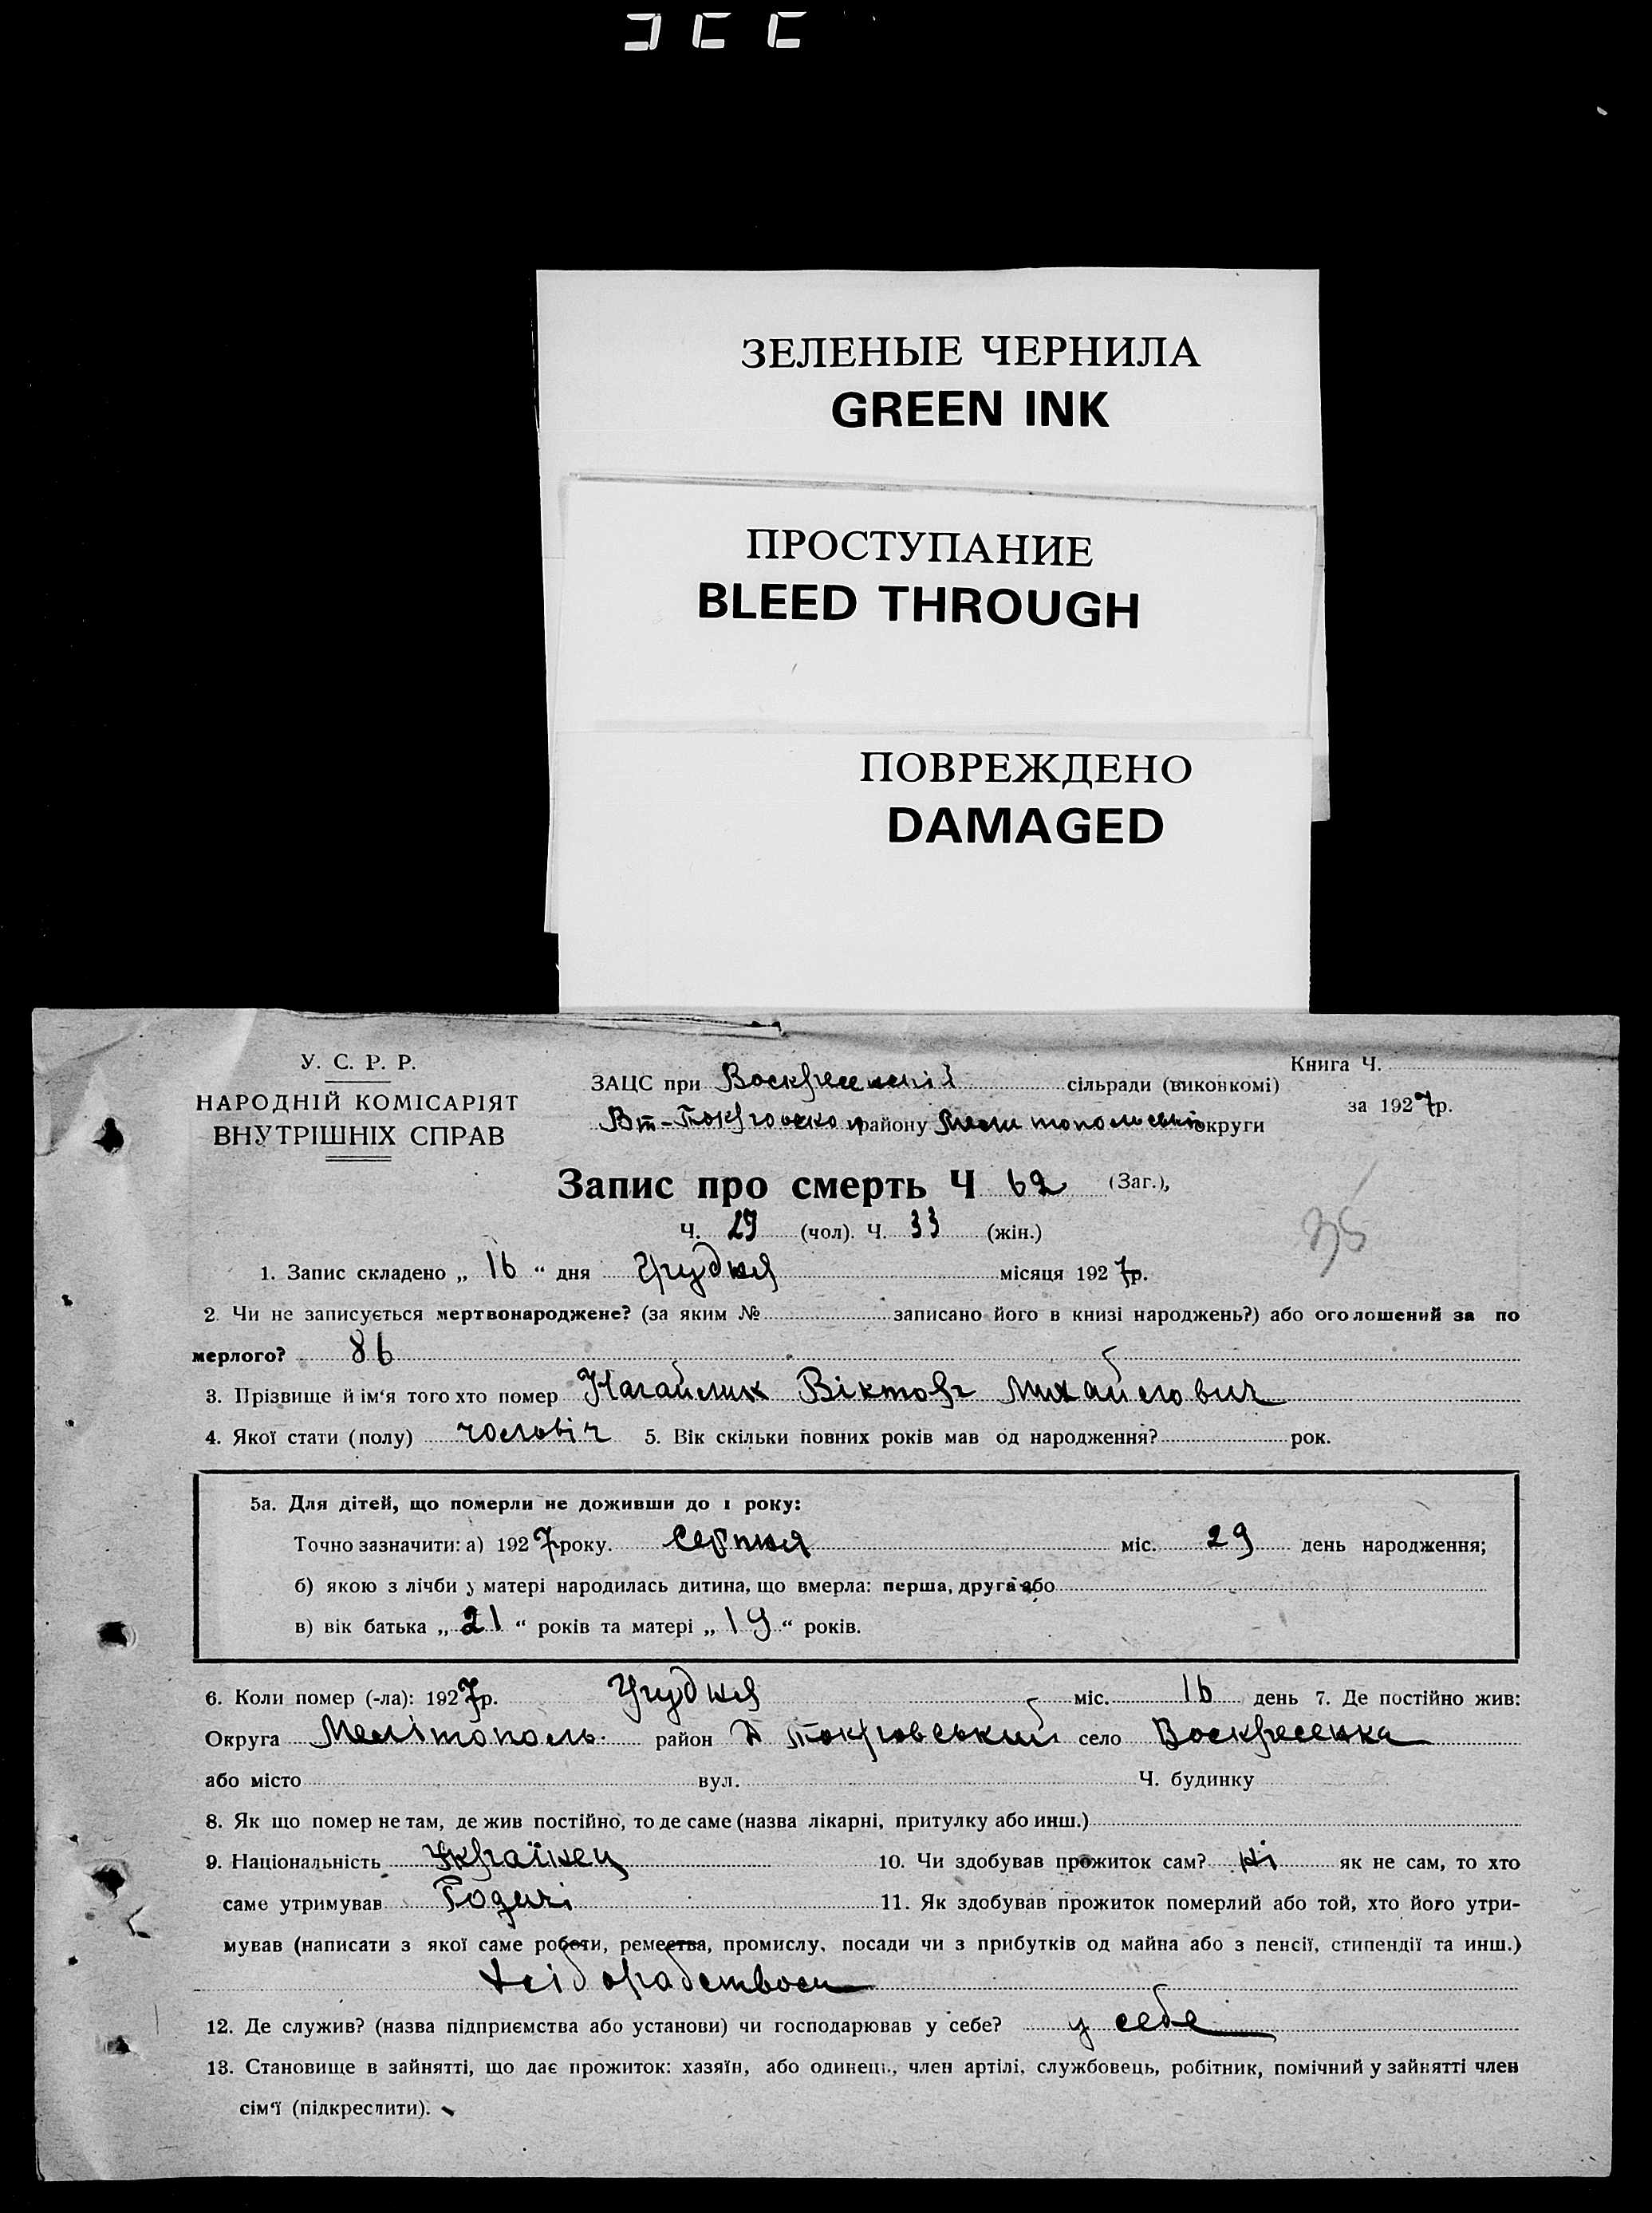 ЗЕЛЕНЫЕ ЧЕРНИЛА
GREEN INK
ПРОСТУПАНИЕ
BLEED THROUGH
ПОВРЕЖДЕНО
DAMAGED
У. С. Р. Р.
НАРОДНІЙ КОМІСАРІЯТ
ВНУТРІШНІХ СПРАВ
Книга Ч.
за 1927р.
ЗАЦС при сільради (виконкомі)
району округи
Запис про смерть Ч 62 (Заг.),
Ч. 29 (чол). Ч. 33 (жін.)
1. Запис складено „ 16 “ дня Грудня місяця 1927р.
2. Чи не записується мертвонароджене? (за яким № записано його в книзі народжень?) або оголошений за по
мерлого? 86
3. Прізвище й ім'я того хто помер Нагайник Віктор Михайлович
4. Якої стати (полу) чоловіч 5. Вік скільки повних років мав од народження? рок.
5а. Для дітей, що померли не доживши до 1 року:
Точно зазначити: а) 1927 року. Серпня міс. 29 день народження;
б) якою з лічби у матері народилась дитина, що вмерла: перша, друга або
в) вік батька „ 21 “ років та матері „ 19 “ років.
6. Коли помер (-ла): 1927р. Грудня міс. 16 день 7. Де постійно жив:
Округа Мелітополь. район Покровський село Воскресенка
або місто вул. Ч. будинку
8. Як що помер не там, де жив постійно, то де саме (назва лікарні, притулку або инш.)
9. Національність Українец 10. Чи здобував прожиток сам? ні як не сам, то хто
саме утримував Родичі 11. Як здобував прожиток померлий або той, хто його утри-
мував (написати з якої саме роботи, ремества, промислу, посади чи з прибутків од майна або з пенсії, стипендії та инш.)
12. Де служив? (назва підприємства або установи) чи господарював у себе? у себе
13. Становище в зайнятті, що дає прожиток: хазяїн, або одинець, член артілі, службовець, робітник, помічний у зайнятті член
сім'ї (підкреслити).